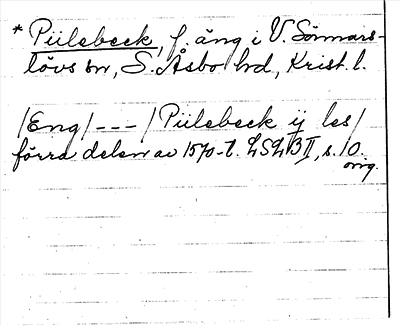 * Piilebeck, f. äng i V. Sönnars-
lövs sn, S. Åsbo hd, Krist. l.
/Eng/ --- / Piilebeck ij les /
förra delen av 1570-t. LSLB II, s. 10.
orig.